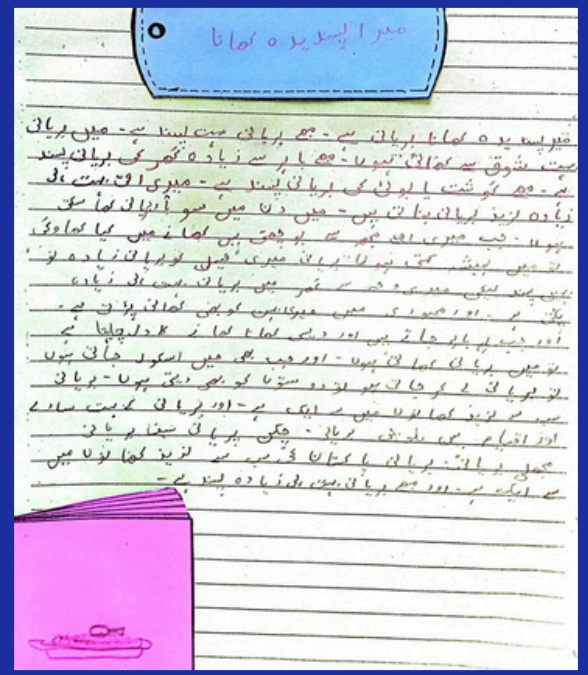 میرا پسندیدہ کھانا
میرا پسندیدہ کھانا بریانی ہے - مجھے بریانی بہت پسند ہے - میں بریانی
بہت شوق سے کھاتی ہوں - مجھے باہر سے زیادہ گھر کی بریانی پسند
ہے - مجھے گوشت یا بوٹی کی بریانی پسند ہے - میری امی بہت ہی
زیادہ لزیز بریانی بناتی ہیں - میں دن میں سو بریانی کھا سکتی
ہوں - جب میری امی مجھ سے پوچھتی ہیں کھانے میں کیا کھاوگی
تو میں ہمیشہ کہتی ہوں بریانی میری فیملی کو بریانی زیادہ تو
نہیں پسند لیکن میری وجہ سے گھر میں بریانی بہت ہی زیادہ
پکتی ہے - اور مجبوری میں میری بہن کو بھی کھانی پڑتی ہے -
اور جب ہم باہر جاتے ہیں اور دیسی کھانا کھانے کا دل چاہتا ہے
تو میں بریانی کھاتی ہوں - اور جب بھی میں اسکول جاتی ہوں
تو بریانی لے کر جاتی ہوں تو دوستوں کو بھی دیتی ہوں - بریانی
سب سے لزیز کھانوں میں سے ایک ہے - اور بریانی کی بہت سارے
اور اقسام ہیں بریانی - چکن بریانی بریانی
بریانی - بریانی پاکستان کی سب سے لزیز کھانوں میں
سے ایک ہے - اور مجھے بریانی بہت ہی زیادہ پسند ہے -